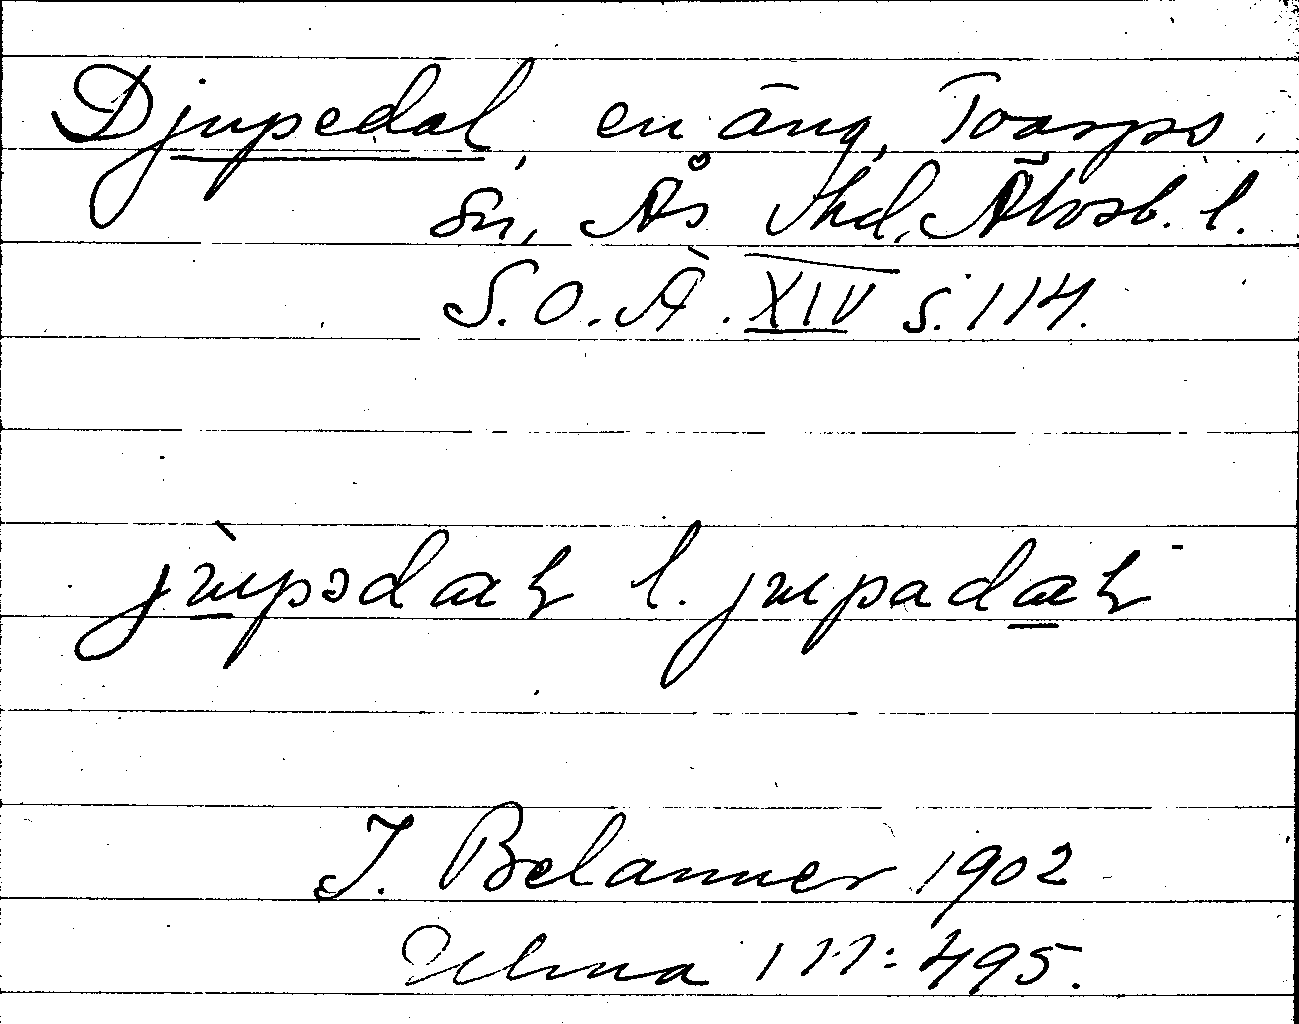 Djupedal, en äng, Toarps
sn, Ås hd, Älvsb. l.
S.O.Ä. XIV s. 114.
jùpədaɽ l. jupadaɽ
J. Belanner 1902
Ulma 177:495.